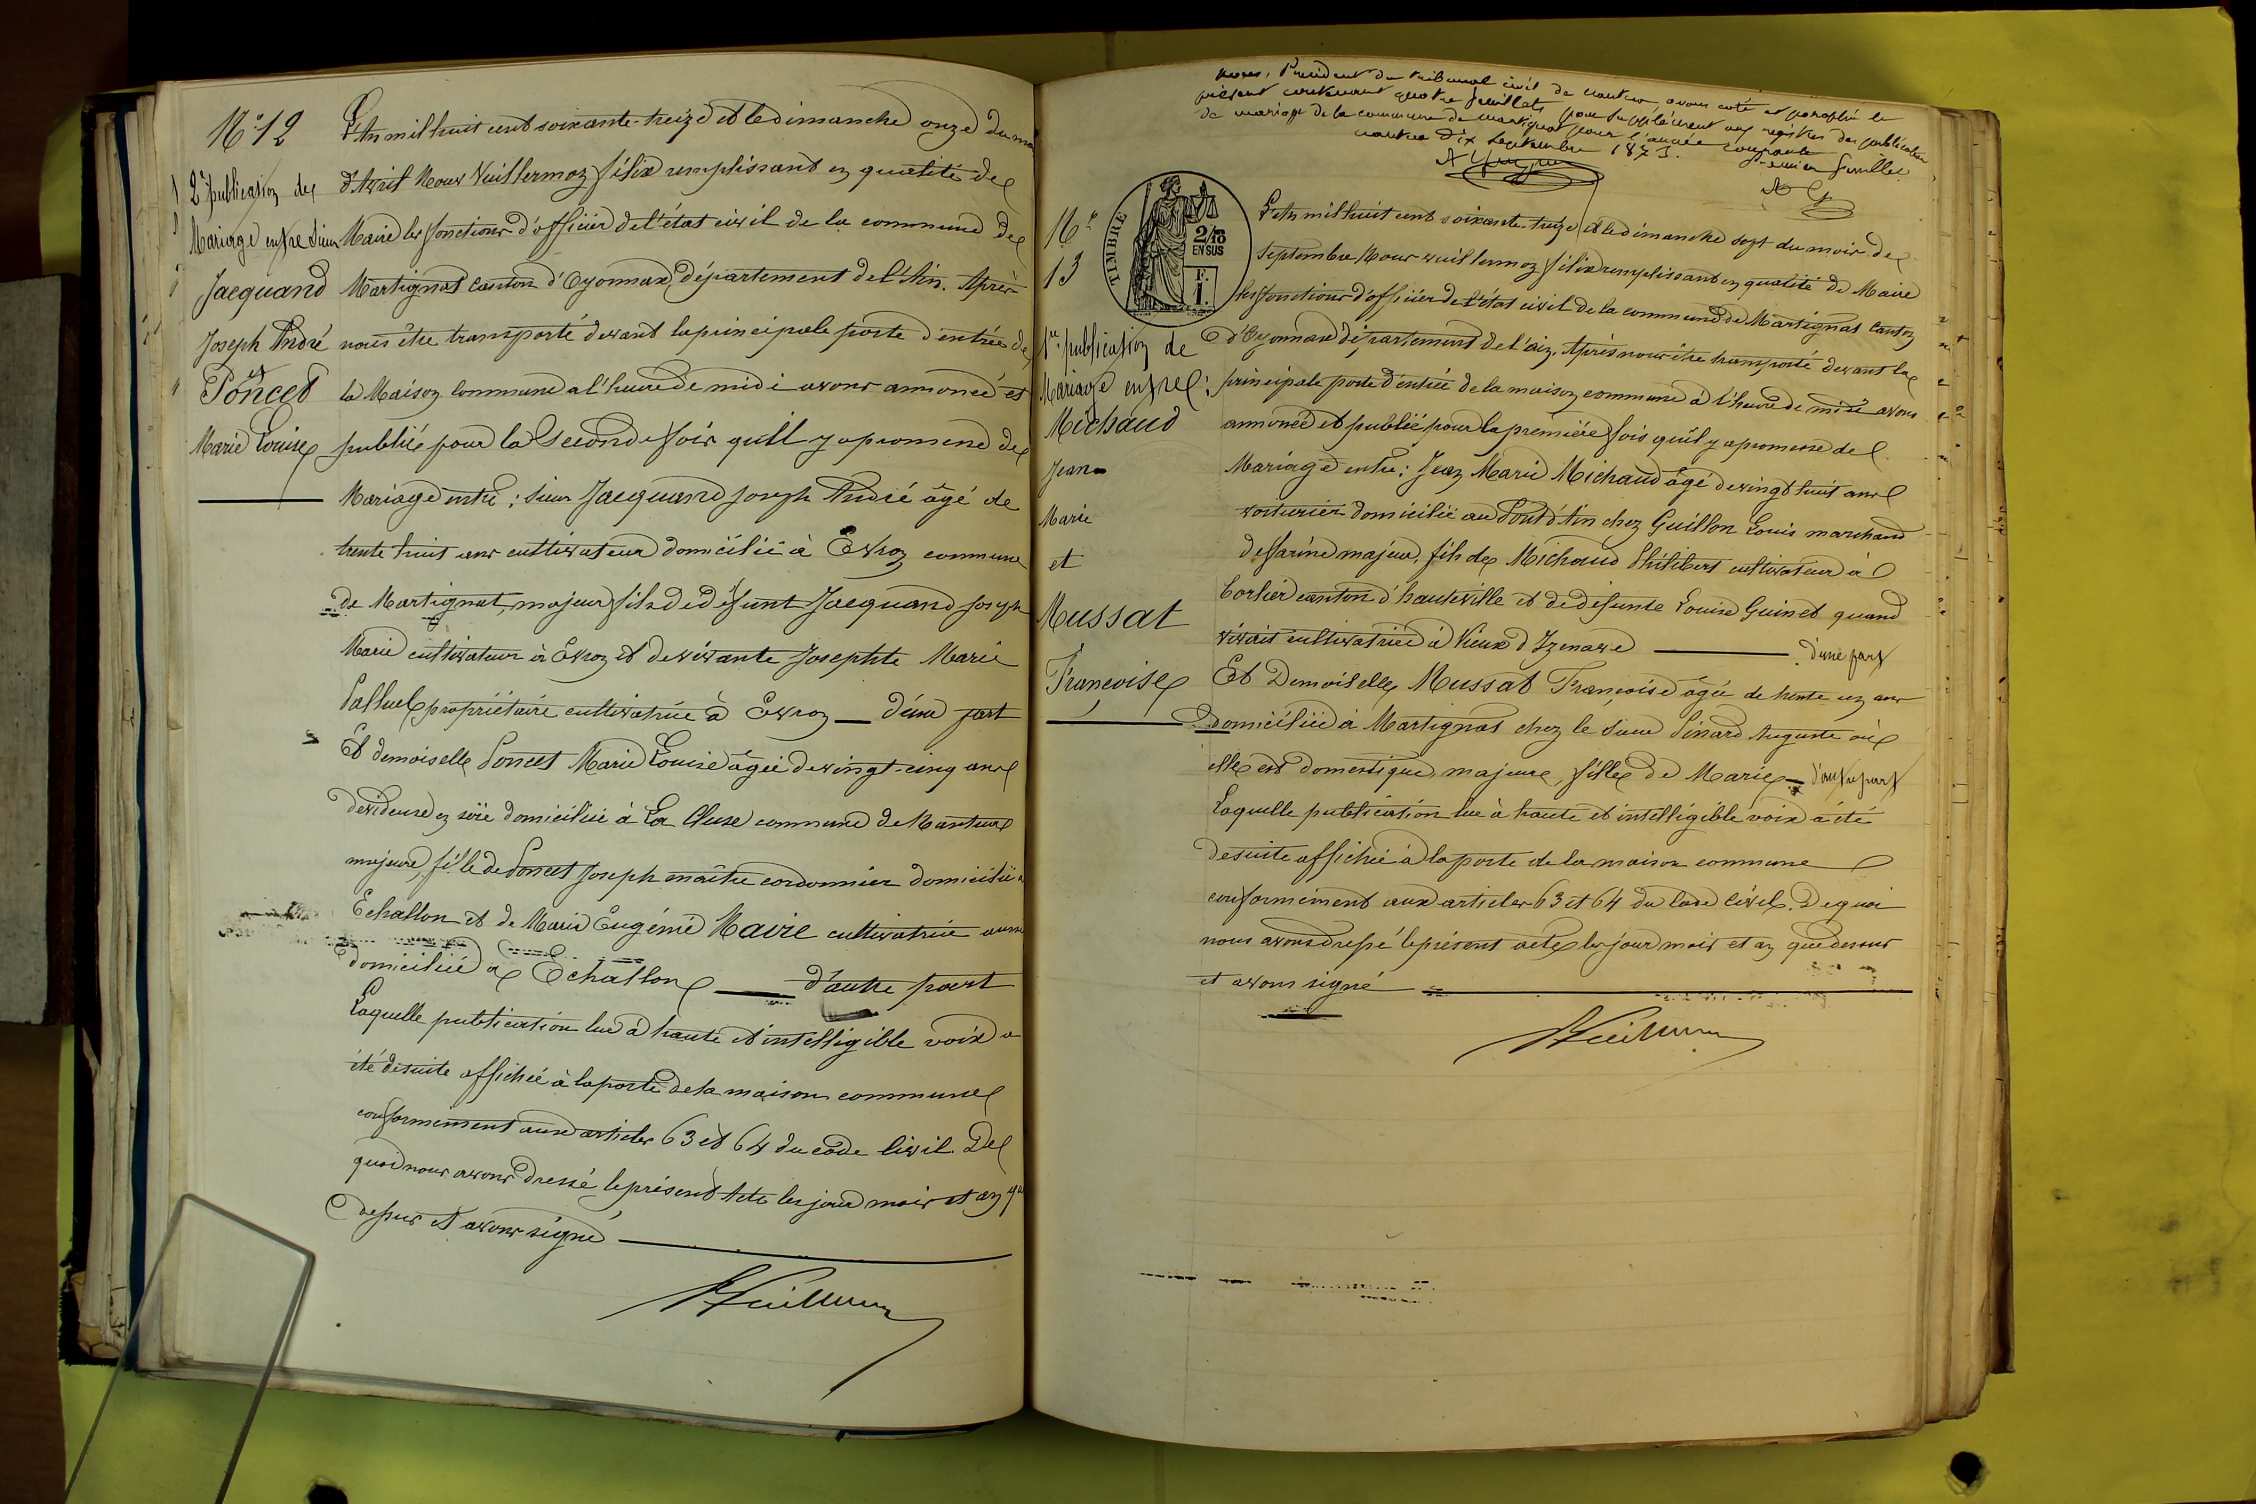 N° 12
2e publication de
Mariage entre Sieur
Jacquand
Joseph André
et
Poncet
Marie Louise
L'An mil huit cent soixante-treize et le dimanche onze du mois
d'Avril Nous Vuillermoz félix remplissant en qualité de
Maire les fonctions d'officier de l'état civil de la commune de
Martignat canton d'Oyonnax département de l'Ain. Après
nous être transporté devant la principale porte d'entrée de
la Maison commune a l'heure de midi avons annoncé et
publié pour la Seconde fois qu'il y a promesse de
Mariage entre : sieur Jacquand Joseph André âgé de
trente huit ans cultivateur domicilié à Evron commune
de Martignat, majeur fils de défunt Jacquand Joseph
Marie cultivateur à Evron et de vivante Josephte Marie
propriétaire cultivatrice à Evron — d'une part
Et demoiselle Poncet Marie Louise âgée de vingt-cinq ans
dévideuse en soie domiciliée à La Cluse commune de Nantua
majeure, fille de Poncet Joseph maître cordonnier domicilié à
Echallon et de Marie Eugénie Mavie cultivatrice aussi
domiciliée à Echallon — d'autre part
Laquelle publication lue à haute et intelligible voix a
été desuite affichée à la porte de la maison commune
conformément aux articles 63 et 64 du code Civil. De
quoi nous avons dressé le présent Acte les jour mois et an que
dessus et avons signé
Vuillermoz
Nous, Président du tribunal civil de nantua avons coté et paraphé le
présent contenant quatre feuillets pour supplément aux registres des publications
de mariage de la commune de martignat pour l'année courante
nantua dix septembre 1873. Premier feuillet
TIMBRE
2/10
EN SUS
F.
1.
N°
13
1re publication de
Mariage entre :
Michaud
Jean
Marie
et
Mussat
Françoise
L'An mil huit cent soixante-treize et le dimanche sept du mois de
Septembre Nous vuillermoz félix remplissant en qualité de Maire
les fonctions d'officier de l'état civil de la commune de Martignat canton
d'Oyonnax département de l'ain. Après nous être transporté devant la
principale porte d'entrée de la maison commune à l'heure de midi avons
annoncé et publié pour la première fois qu'il y a promesse de
Mariage entre : Jean Marie Michaud âgé de vingt huit ans
voiturier domicilié au Pont d'Ain chez Guillon Louis marchand
de farine majeur, fils de Michaud Philibert cultivateur à
Corlier canton d'hauteville et de défunte Louise Guinet quand
vivait cultivatrice à Vieux d'Izenave — d'une part
Et Demoiselle Mussat Françoise âgée de trente un ans
domiciliée à Martignat chez le Sieur Pinard Auguste où
elle est domestique, majeure, fille de Marie — d'autre part
Laquelle publication lue à haute et intelligible voix a été
desuite affichée à la porte de la maison commune
conformément aux articles 63 et 64 du Code Civil. De quoi
nous avons dressé le présent acte les jour mois et an que dessus
et avons signé
Vuillermoz